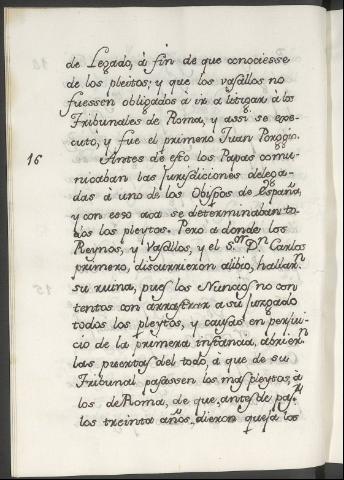 de Legado, à fin de que conociesse
de los pleitos; y que los vasallos no
fuessen obligados à ir a litigar à los
Tribunales de Roma, y assi se exe-
cutò, y fue el primero Juan Poggio.
16 Antes de esto los Papas comu-
nicaban las jurisdiciones delega-
das à uno de los Obispos de España,
y con esso acà se determinaban to-
dos los pleytos. Pero a donde los
Reynos, y Vasallos, y el S.or D.n Carlos
primero, discurrieron alibio, hallar.n
su ruina, pues los Nuncios no con-
tentos con arrastrar a su juzgado
todos los pleytos, y causas en perjui-
cio de la primera instancia, abrier.n
las puertas del todo, à que de su
Tribunal passassen los mas pleytos, à
los de Roma, de que, antes de pas.r
los treinta años, dieron quexa los